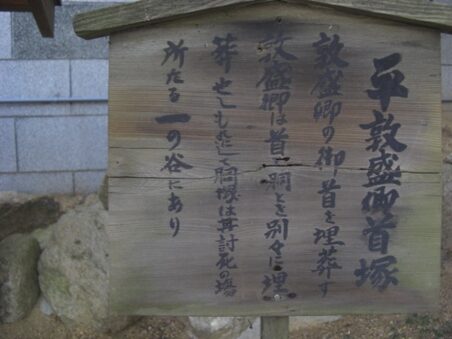 平敦盛卿首塚
敦盛卿の御首を埋葬す
敦盛卿は首と胴とを別々に埋
葬せしものにして胴塚は其討死の場
所たる一の谷にあり